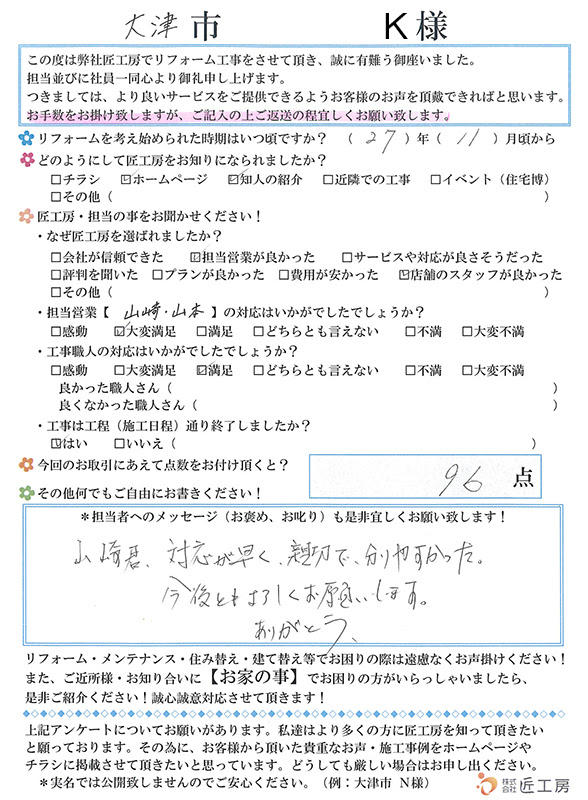 大津市 K様
この度は弊社匠工房でリフォーム工事をさせて頂き、誠に有難う御座いました。
担当並びに社員一同心より御礼申し上げます。
つきましては、より良いサービスをご提供できるようお客様のお声を頂戴できればと思います。
お手数をお掛け致しますが、ご記入の上ご返送の程宜しくお願い致します。
リフォームを考え始められた時期はいつ頃ですか？ （27）年（11）月頃から
どのようにして匠工房をお知りになられましたか？
□チラシ ☑ホームページ ☑知人の紹介 □近隣での工事 □イベント（住宅博）
□その他（ ）
匠工房・担当の事をお聞かせください！
・なぜ匠工房を選ばれましたか？
□会社が信頼できた ☑担当営業が良かった □サービスや対応が良さそうだった
□評判を聞いた □プランが良かった □費用が安かった ☑店舗のスタッフが良かった
□その他（ ）
・担当営業【 山崎・山本 】の対応はいかがでしたでしょうか？
□感動 ☑大変満足 □満足 □どちらとも言えない □不満 □大変不満
・工事職人の対応はいかがでしたでしょうか？
□感動 □大変満足 ☑満足 □どちらとも言えない □不満 □大変不満
良かった職人さん（ ）
良くなかった職人さん（ ）
・工事は工程（施工日程）通り終了しましたか？
☑はい □いいえ（ ）
今回のお取引にあえて点数をお付け頂くと？ 96 点
その他何でもご自由にお書きください！
＊担当者へのメッセージ（お褒め、お叱り）も是非宜しくお願い致します！
山崎君、対応が早く、親切で、分りやすかった。
今後ともよろしくお願いします。
ありがとう、
リフォーム・メンテナンス・住み替え・建て替え等でお困りの際は遠慮なくお声掛けください！
また、ご近所様・お知り合いに【お家の事】でお困りの方がいらっしゃいましたら、
是非ご紹介ください！誠心誠意対応させて頂きます！
上記アンケートについてお願いがあります。私達はより多くの方に匠工房を知って頂きたい
と願っております。その為に、お客様から頂いた貴重なお声・施工事例をホームページや
チラシに掲載させて頂きたいと思っています。どうしても厳しい場合はお申し出ください。
＊実名では公開致しませんのでご安心ください。（例：大津市 N様）
株式会社 匠工房